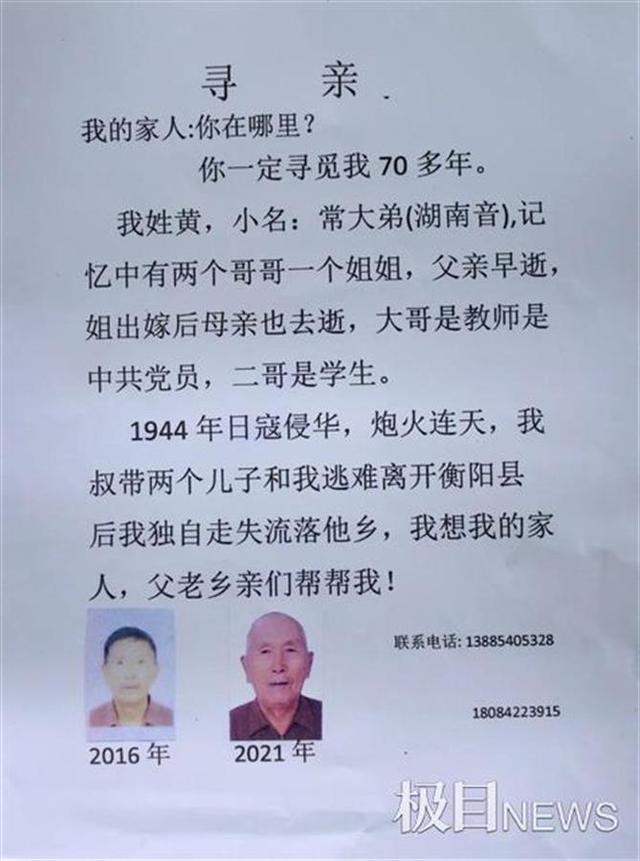 寻 亲
我的家人:你在哪里？
你一定寻觅我 70 多年。
我姓黄，小名：常大弟(湖南音),记
忆中有两个哥哥一个姐姐，父亲早逝，
姐出嫁后母亲也去逝，大哥是教师是
中共党员，二哥是学生。
1944 年日寇侵华，炮火连天，我
叔带两个儿子和我逃难离开衡阳县
后我独自走失流落他乡，我想我的家
人，父老乡亲们帮帮我！
联系电话: 13885405328
18084223915
2016 年 2021 年
极目NEWS